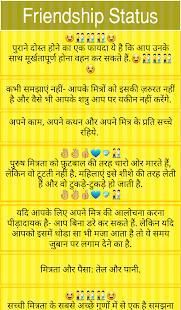 Friendship Status
पुराने दोस्त होने का एक फायदा ये है कि आप उनके
साथ मूर्खतापूर्ण होना वहन कर सकते हैं.
कभी समझाएं नहीं- आपके मित्रों को इसकी ज़रुरत नहीं
है और वैसे भी आपके शत्रु आप पर यकीन नहीं करेंगे.
अपने काम, अपने कथन और अपने मित्र के प्रति सच्चे
रहिये.
पुरुष मित्रता को फ़ुटबाल की तरह चारो ओर मारते हैं,
लेकिन वो टूटती नहीं है. महिलाएं इसे शीशे की तरह लेती
हैं और वो टुकड़े-टुकड़े हो जाती है.
यदि आपके लिए अपने मित्र की आलोचना करना
पीड़ादायक है- आप बिना डरे ऐसे कर सकते हैं. लेकिन यदि
आपको इसमें थोड़ा सा भी मजा आता है तो ये समय
जुबान पर लगाम देने का है.
मित्रता और पैसा: तेल और पानी.
सच्ची मित्रता के सबसे अच्छे गुणों में से एक है समझना